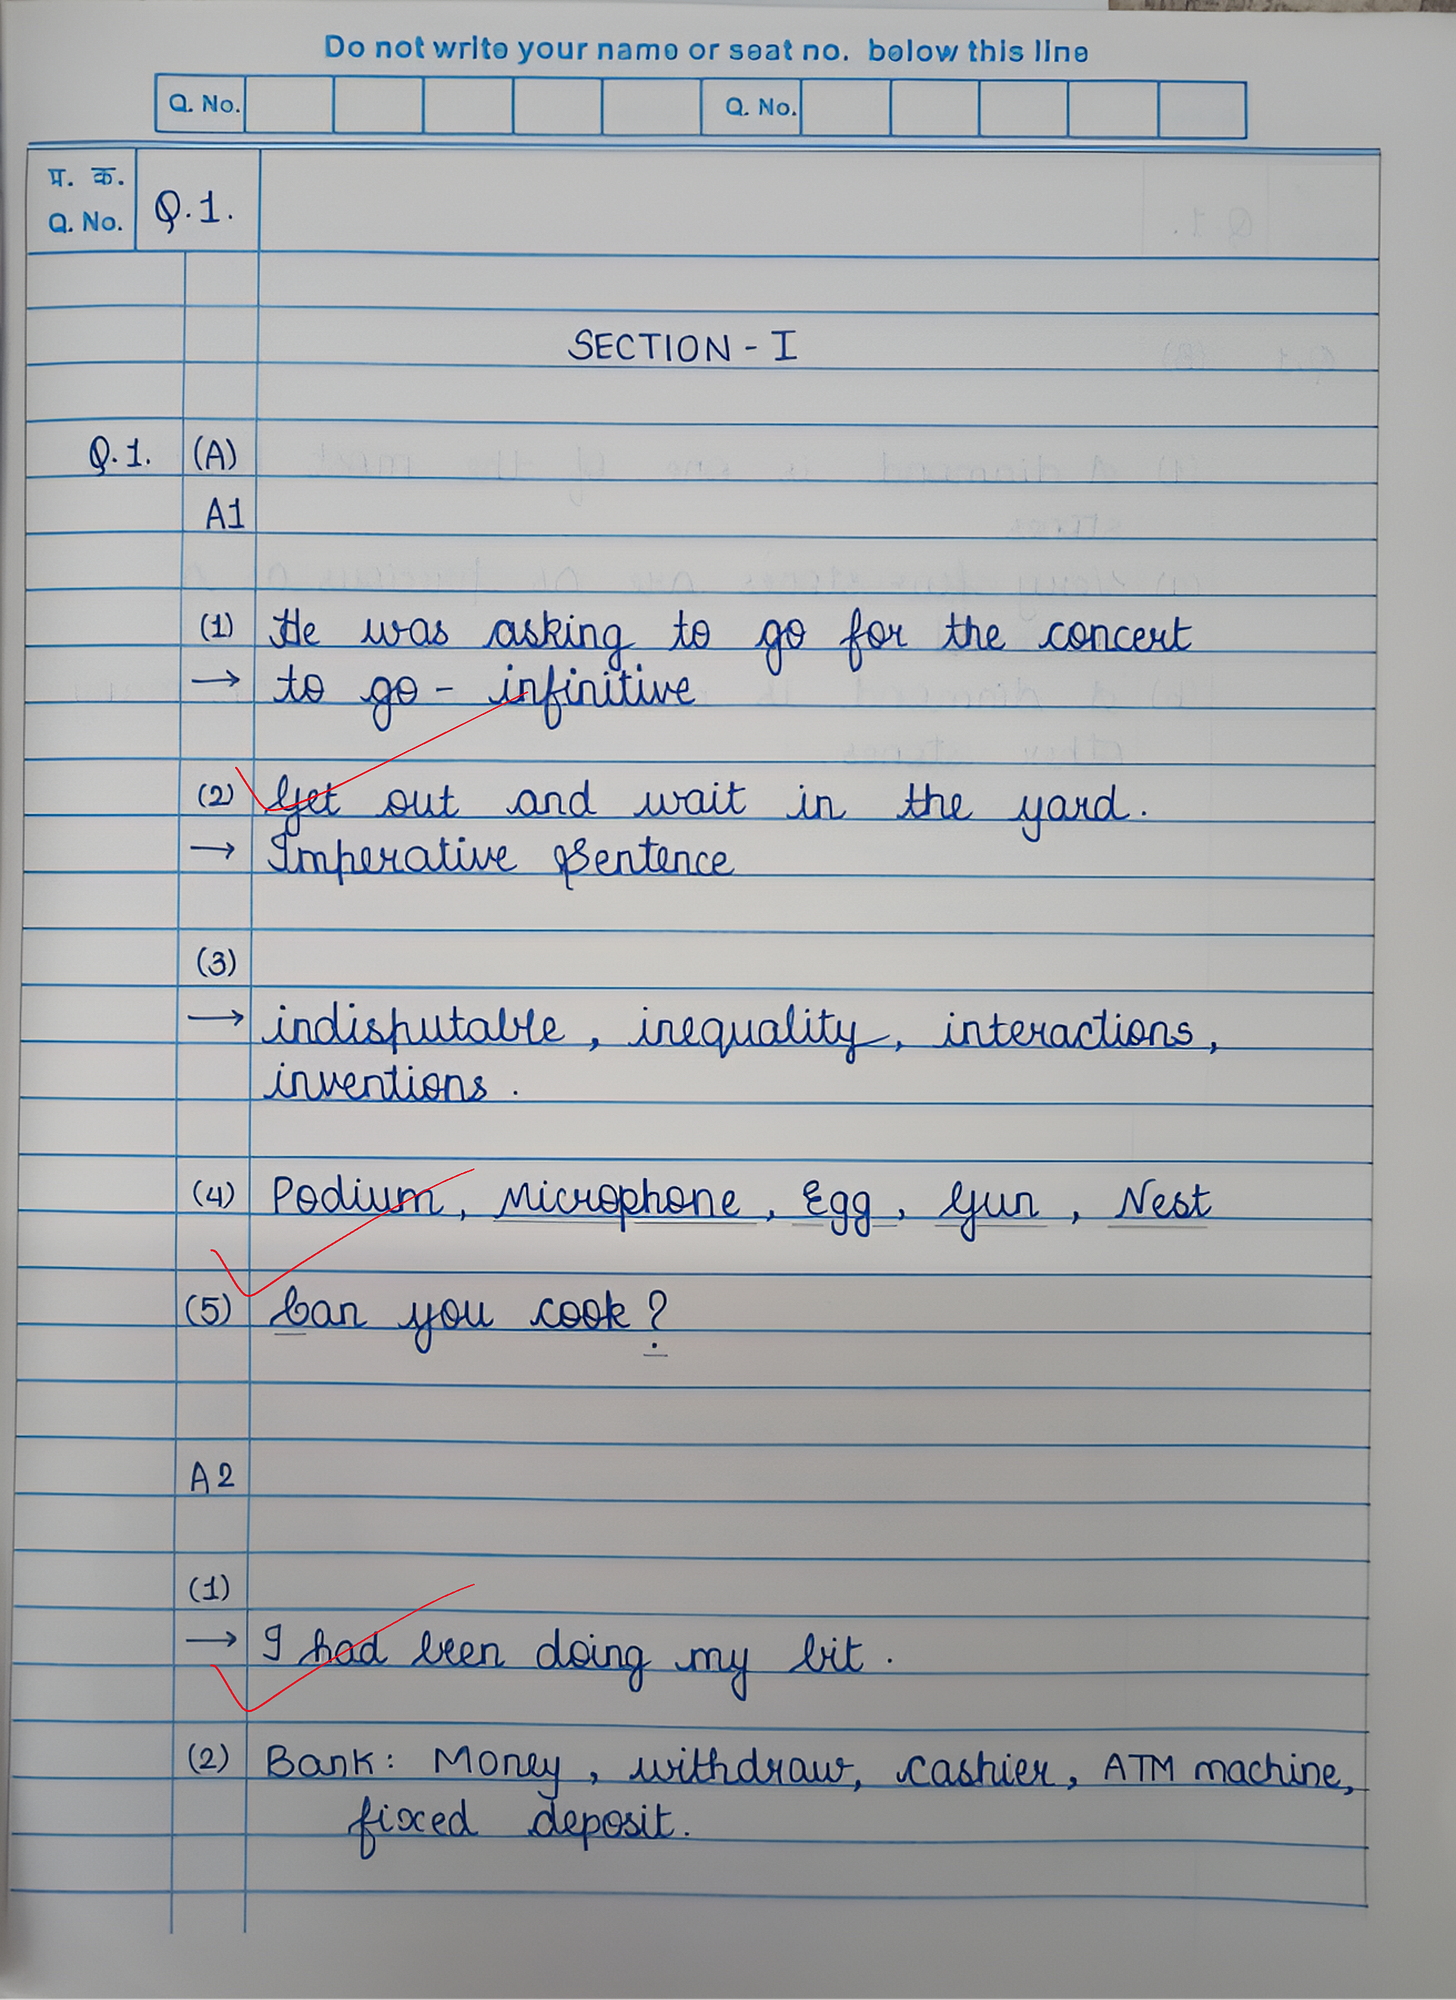 Do not write your name or seat no. below this line
Q. No. Q. No.
प्र. क.
Q. No. Q.1.
SECTION - I
Q.1. (A)
A1
(1) He was asking to go for the concert
→ to go - infinitive
(2) Get out and wait in the yard.
→ Imperative Sentence
(3)
→ indisputable, inequality, interactions,
inventions.
(4) Podium, Microphone, Egg, Gun, Nest
(5) Can you cook?
A2
(1)
→ I had been doing my bit.
(2) Bank: Money, withdraw, cashier, ATM machine,
fixed deposit.